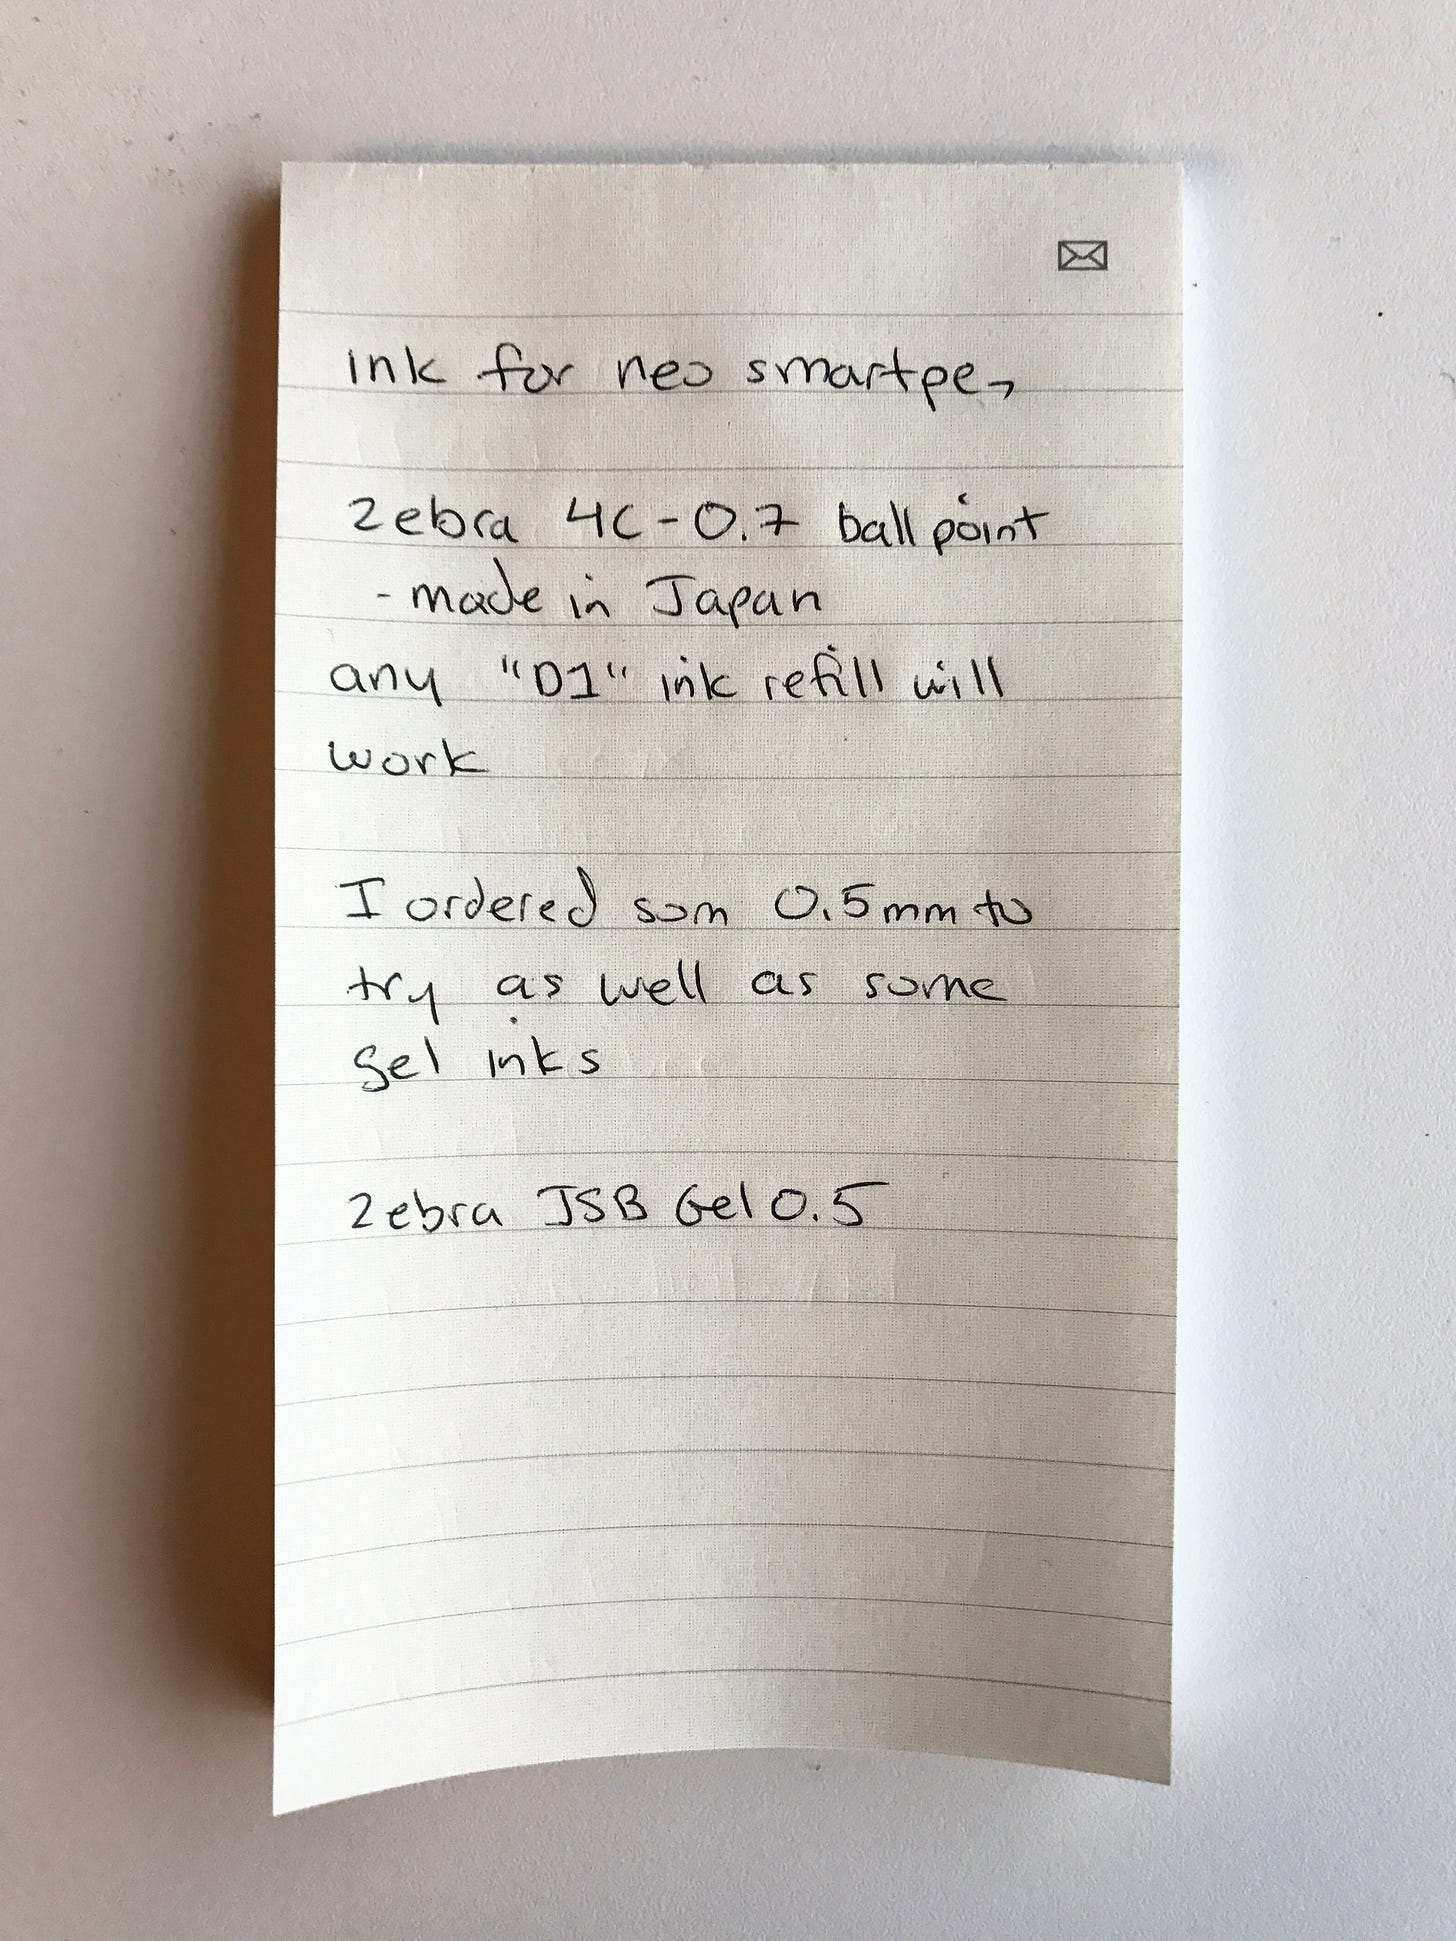 ink for neo smartpen
zebra 4C-0.7 ballpoint
- made in Japan
any "D1" ink refill will
work
I ordered som 0.5mm to
try as well as some
gel inks
zebra JSB Gel 0.5